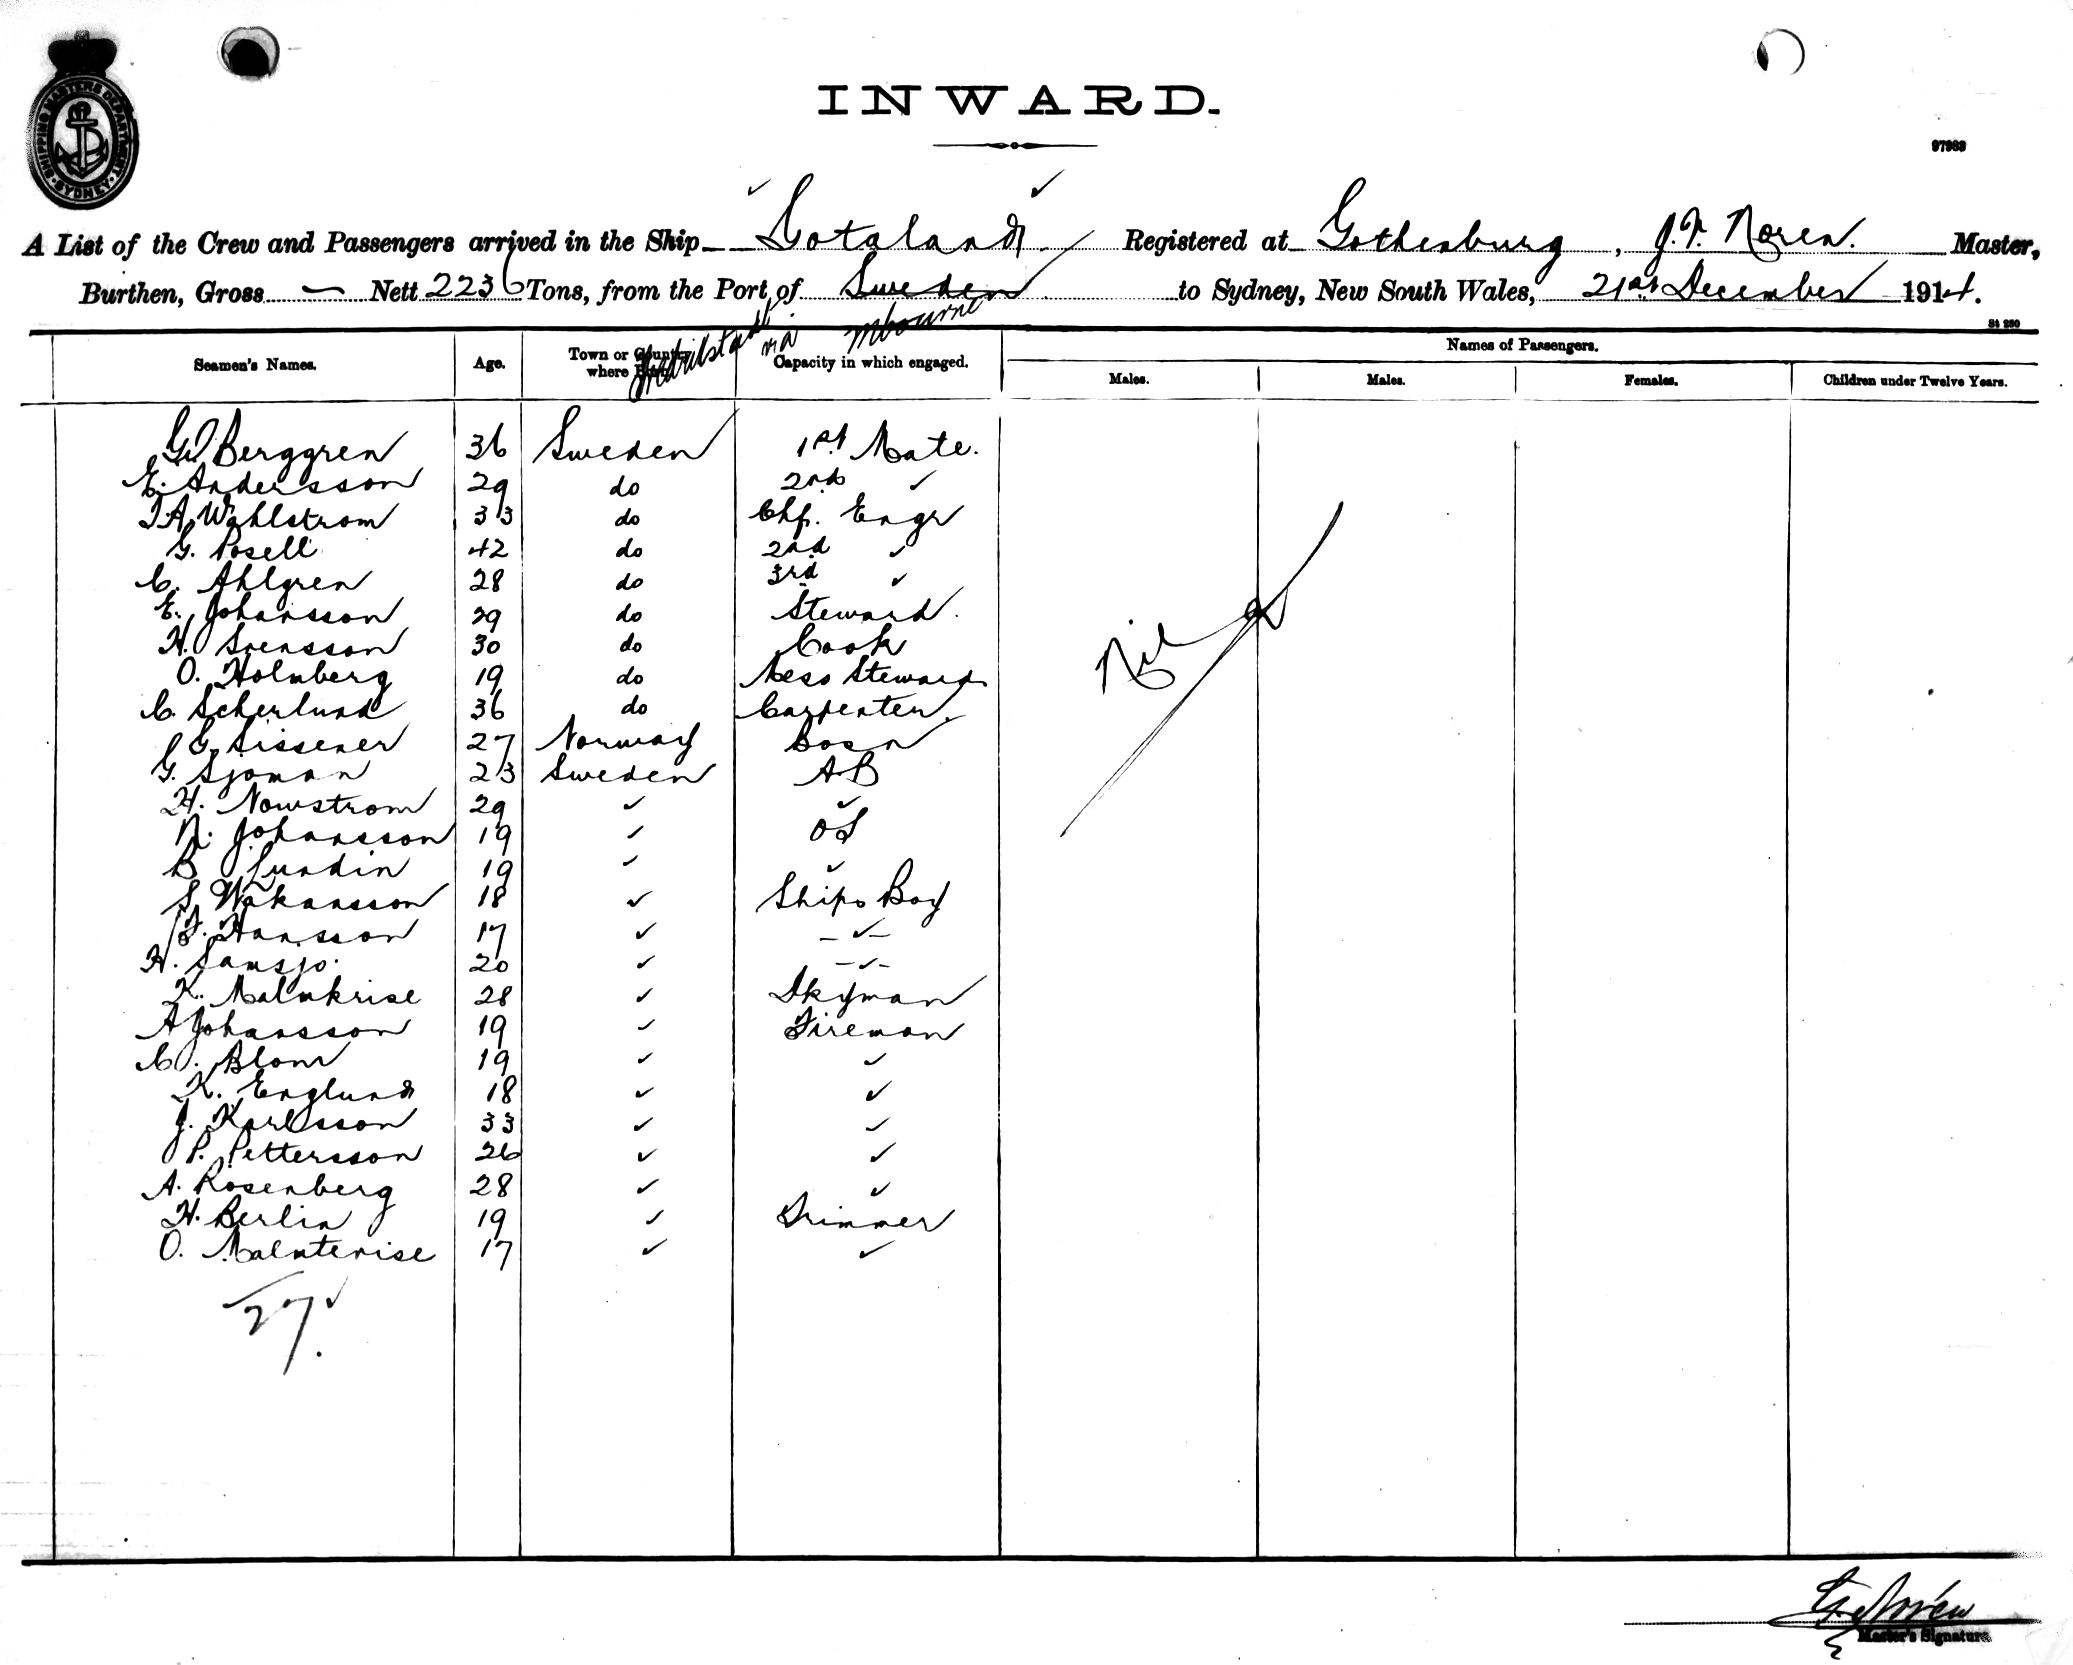 SHIPPING MASTERS DEPARTMENT SYDNEY
INWARD.
97983
A List of the Crew and Passengers arrived in the Ship Gotaland Registered at Gothenburg, J.F. Noren. Master,
Burthen, Gross — Nett 2236 Tons, from the Port of Sweden to Sydney, New South Wales, 21st December 1914.
Fredrikstad via Mbourne
St 250
Seamen's Names. Age. Town or Country where Born. Capacity in which engaged. Names of Passengers.
Males. Males. Females. Children under Twelve Years.
G. Berggren 36 Sweden 1st Mate.
E. Andersson 29 do 2nd ✓
J.A. Wahlstrom 33 do Chf. Engr
G. Posell 42 do 2nd ✓
C. Ahlgren 28 do 3rd ✓
E. Johansson 29 do Steward.
H. Svensson 30 do Cook
O. Holmberg 19 do Mess Steward
C. Scherlund 36 do Carpenter.
G. Sissener 27 Norway Bosn
G. Sjoman 23 Sweden AB
H. Nowstrom 29 ✓ ✓
N. Johansson 19 ✓ OS
B Lundin 19 ✓ ✓
S. Wakansson 18 ✓ Ships Boy
F. Hansson 17 ✓ -✓-
H. Samsjo. 20 ✓ -✓-
K. Malmkrise 28 ✓ Dkyman
A Johansson 19 ✓ Fireman
C. Blom 19 ✓ ✓
K. Englund 18 ✓ ✓
J. Karlsson 33 ✓ ✓
P. Pettersson 26 ✓ ✓
A. Rosenberg 28 ✓ ✓
H. Berlin 19 ✓ Trimmer
O. Malmterise 17 ✓ ✓
Nil
27.
Noren
Master's Signature